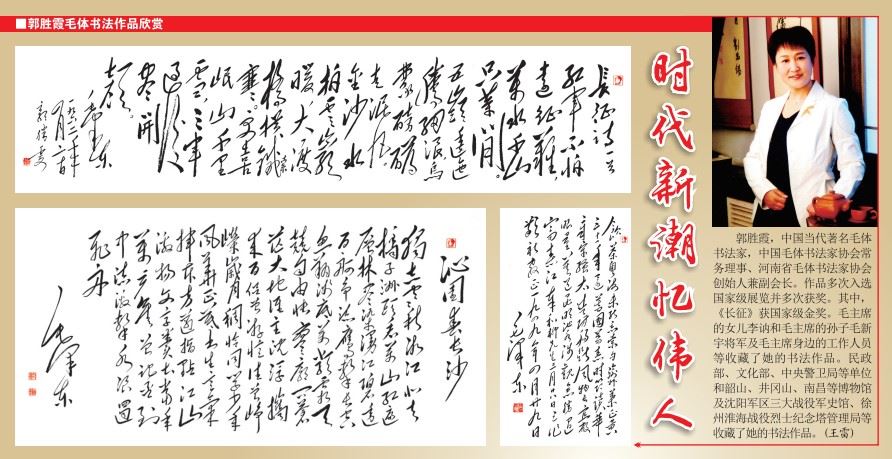 ■郭胜霞毛体书法作品欣赏
长征诗一首
红军不怕
远征难
万水千山
只等闲
五岭逶迤
腾细浪乌
蒙磅礴
走泥丸
金沙水
拍云崖
暖大渡
桥横铁索
寒更喜
岷山千里
雪三军
过后
尽开
颜
毛泽东
郭胜霞
沁园春长沙
独立寒秋湘江北去
橘子洲头看万山红遍
层林尽染漫江碧透
百舸争流鹰击长空
鱼翔浅底万类霜天
竞自由怅寥廓问苍
茫大地谁主沉浮携
来百侣曾游忆往昔峥
嵘岁月稠恰同学少年
风华正茂书生意气
挥斥方遒指点江山
激扬文字粪土当年
万户侯曾记否到
中流击水浪遏
飞舟
毛泽东
饮茶粤海未能忘索句渝州叶正黄
三十一年还旧国落花时节读华
章牢骚太盛防肠断风物长宜放
眼量莫道昆明池水浅观鱼胜过
富春江
一九四九年四月廿九日
毛泽东
时代新潮忆伟人
郭胜霞，中国当代著名毛体
书法家，中国毛体书法家协会常
务理事、河南省毛体书法家协会
创始人兼副会长。作品多次入选
国家级展览并多次获奖。其中，
《长征》获国家级金奖。毛主席
的女儿李讷和毛主席的孙子毛新
宇将军及毛主席身边的工作人员
等收藏了她的书法作品。民政
部、文化部、中央警卫局等单位
和韶山、井冈山、南昌等博物馆
及沈阳军区三大战役军史馆、徐
州淮海战役烈士纪念塔管理局等
收藏了她的书法作品。(王雷)